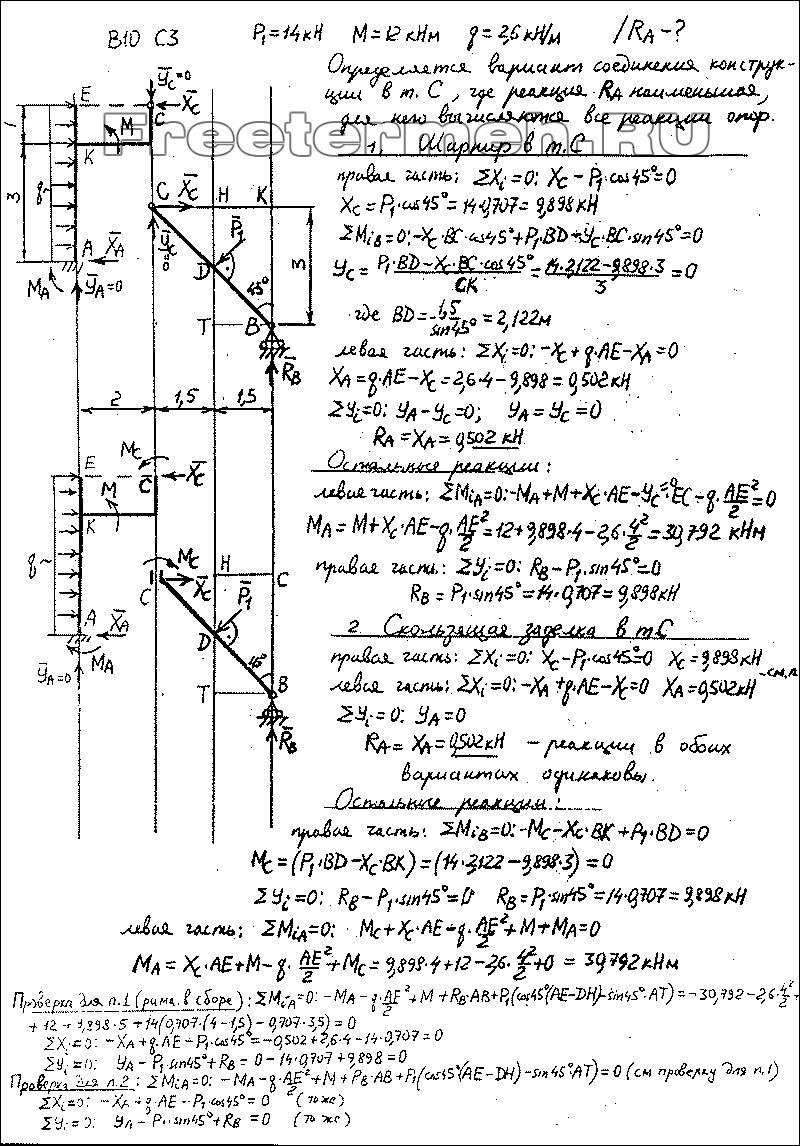 В10 С3 P₁=14кН M=12 кНм q=2,6 кН/м /R_A-?
Определяется вариант соединения конструк-
ции в т. С, где реакция R_A наименьшая,
для него вычисляются все реакции опор.
Freetermen.RU
1. Шарнир в т.С
правая часть: ΣXi=0: Xc-P₁·cos45°=0
Xc=P₁·cos45°=14·0,707=9,898кН
ΣMiB=0: -Xc·BC·cos45°+P₁·BD-Yc·BC·sin45°=0
Yc= (P₁·BD-Xc·BC·cos45°)/CK = (14·2,122-9,898·3)/3 =0
где BD= 1,5/sin45° =2,122м
левая часть: ΣXi=0: -Xc+q·AE-X_A=0
X_A=q·AE-Xc=2,6·4-9,898=0,502кН
ΣYi=0: Y_A-Yc=0; Y_A=Yc=0
R_A=X_A=0,502 кН
Остальные реакции:
левая часть: ΣMiA=0: -M_A+M+Xc·AE-Yc·EC-q·AE²/2=0
M_A=M+Xc·AE-q·AE²/2=12+9,898·4-2,6·4²/2=30,792 кНм
правая часть: ΣYi=0: R_B-P₁·sin45°=0
R_B=P₁·sin45°=14·0,707=9,898кН
2 Скользящая заделка в т.С
правая часть: ΣXi=0: Xc-P₁·cos45°=0 Xc=9,898кН
левая часть: ΣXi=0: -X_A+q·AE-Xc=0 X_A=0,502кН
ΣYi=0: Y_A=0
R_A=X_A=0,502кН - реакции в обоих
вариантах одинаковы.
Остальные реакции:
правая часть: ΣMiB=0: -Mc-Xc·BK+P₁·BD=0
Mc=(P₁·BD-Xc·BK)=(14·2,122-9,898·3)=0
ΣYi=0: R_B-P₁·sin45°=0 R_B=P₁·sin45°=14·0,707=9,898кН
левая часть: ΣMiA=0: Mc+Xc·AE-q·AE²/2+M+M_A=0
M_A=Xc·AE+M-q·AE²/2+Mc=9,898·4+12-2,6·4²/2+0=30,792кНм
Проверка для п.1 (рама в сборе): ΣMiA=0: -M_A-q·AE²/2+M+R_B·AB+P₁(cos45°(AE-DH)-sin45°·AT)=-30,792-2,6·4²/2+
+12+9,898·5+14(0,707·(4-1,5)-0,707·3,5)=0
ΣXi=0: -X_A+q·AE-P₁·cos45°=-0,502+2,6·4-14·0,707=0
ΣYi=0: Y_A-P₁sin45°+R_B=0-14·0,707+9,898=0
Проверка для п.2: ΣMiA=0: -M_A-q·AE²/2+M+P_B·AB+P₁(cos45°(AE-DH)-sin45°AT)=0 (см проверку для п.1)
ΣXi=0: -X_A+q·AE-P₁·cos45°=0 (то же)
ΣYi=0: Y_A-P₁·sin45°+R_B=0 (то же)
Yc=0
E
Xc
C
1
M
K
3
q
C
Xc
H
K
Yc
=0
P₁
A
X_A
D
3
M_A
Y_A=0
45°
T
B
R_B
2
1,5
1,5
Mc
E
C
Xc
M
K
q
Mc
H
C
Xc
C
P₁
A
X_A
D
M_A
Y_A=0
45°
T
B
R_B